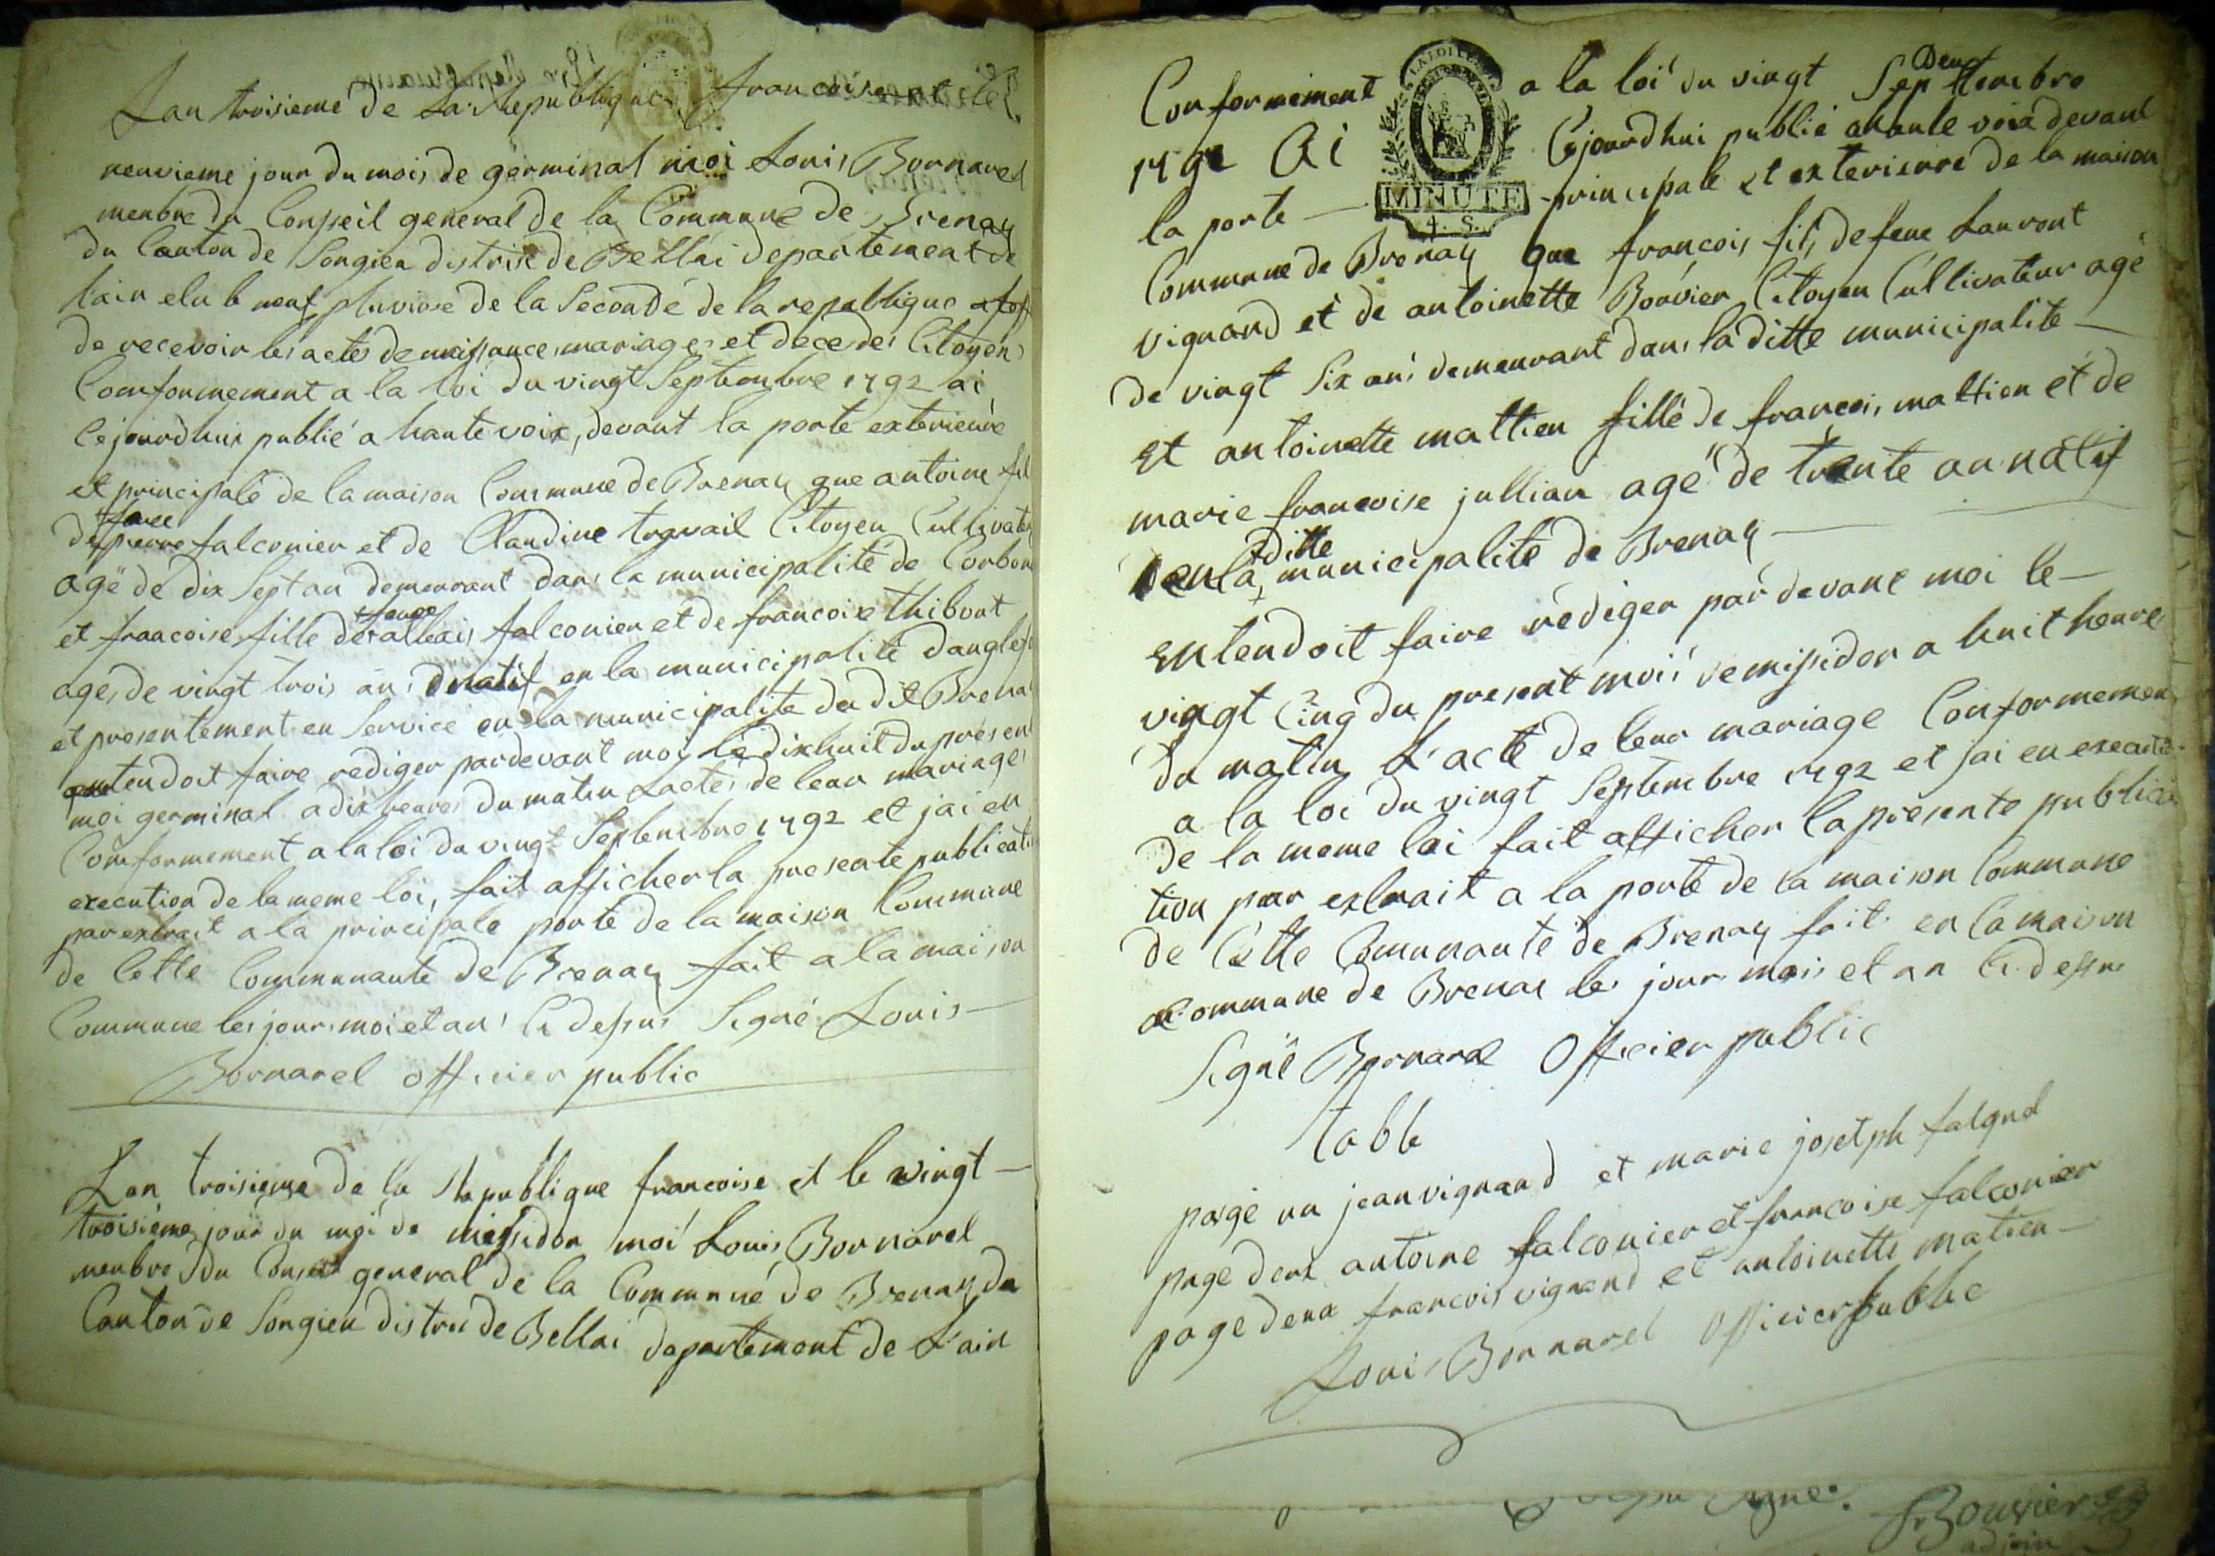 Lan troisieme de la Republique francoise et le
neuvieme jour du mois de germinal moi Louis Bornarel
menbre du Conseil general de la Commune de Brenay
du Canton de Songieu district de Bellai departement de
lain elu le neuf pluviose de la Seconde de la republique
de recevoir les actes de naissances mariages et deces des Citoyens
Conformement a la loi du vingt Septembre 1792 ai
Cejourdhui publié a haute voix, devant la porte exterieure
et principale de la maison Commune de Brenay que antoine fil
de feue pierre falconier et de Claudine travail Citoyen Cultivateu
agé de dix Sept an demeurant dans la municipalité de Corbon
et francoise fille de feue falconier et de francoise thibout
agés de vingt trois ans natif en la municipalité danglef
et presentement en Service en la municipalite du dit Brena
entendoit faire rediger pardevant moy le dixhuit du present
moi germinal a dix heures du matin Lactes de leur mariages
Comformement a la loi du vingt Septembre 1792 et jai en
execution de la meme loi, fait afficher la presente publicati
par extrait a la principale porte de la maison Commune
de Cette Communauté de Brenay fait a la maison
Commune les jours moi et ans Ci dessus Signé Louis
Bornarel officier public
Lan troisieme de la Republique francoise et le vingt
troisieme jour du moi de messidor moi Louis Bornarel
menbre du Conseil general de la Commune de Brenay du
Canton de Songieu distric de Bellai departement de L'ain
Conformement a la loi du vingt Septembre
17 92 Ai Cejourdhui publié a haute voix devant
la porte principale et exterieure de la maison
MINUTE
4. S.
Commune de Brenay que francois fils de feue Laurent
vignand et de antoinette Bouvier Citoyen Cultivateur agé
de vingt Six ans demeurant dans la ditte municipalité
et antoinette mattieu fille de francois mattieu et de
marie francoise jullian agé de trente an natif
en la ditte municipalité de Brenay
entendoit faire rediger par devant moi le
vingt Cinq du present mois de messidor a huit heures
du matin L'acte de leur mariage Conformement
a la loi du vingt Septembre 1792 et jai en executi
de la meme loi fait afficher la presente publica
tion par extrait a la porte de la maison Commune
de Cette Comunauté de Brenay fait en la maison
Commune de Brenay les jours mois et an Ci dessus
Signé Bornarel Officier public
table
page un jean vignand et marie josetph
page deux antoine falconier et francoise falconier
page deux francois vignand et antoinette matieu
Louis Bornarel officier public
Bouvier